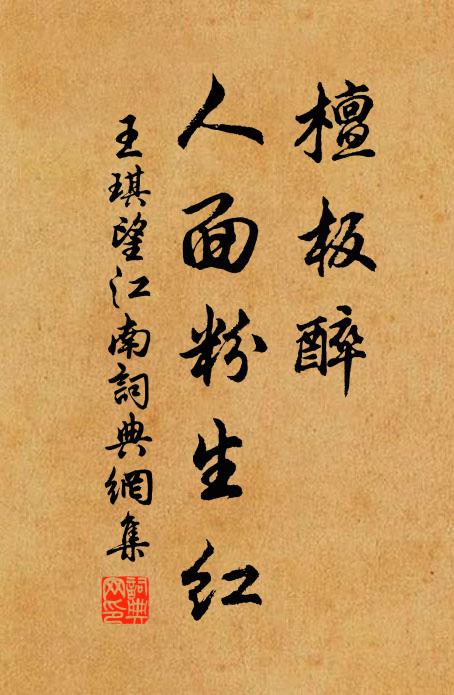 檀板醉
人面粉生红
王琪望江南詞典網集
詞典网印